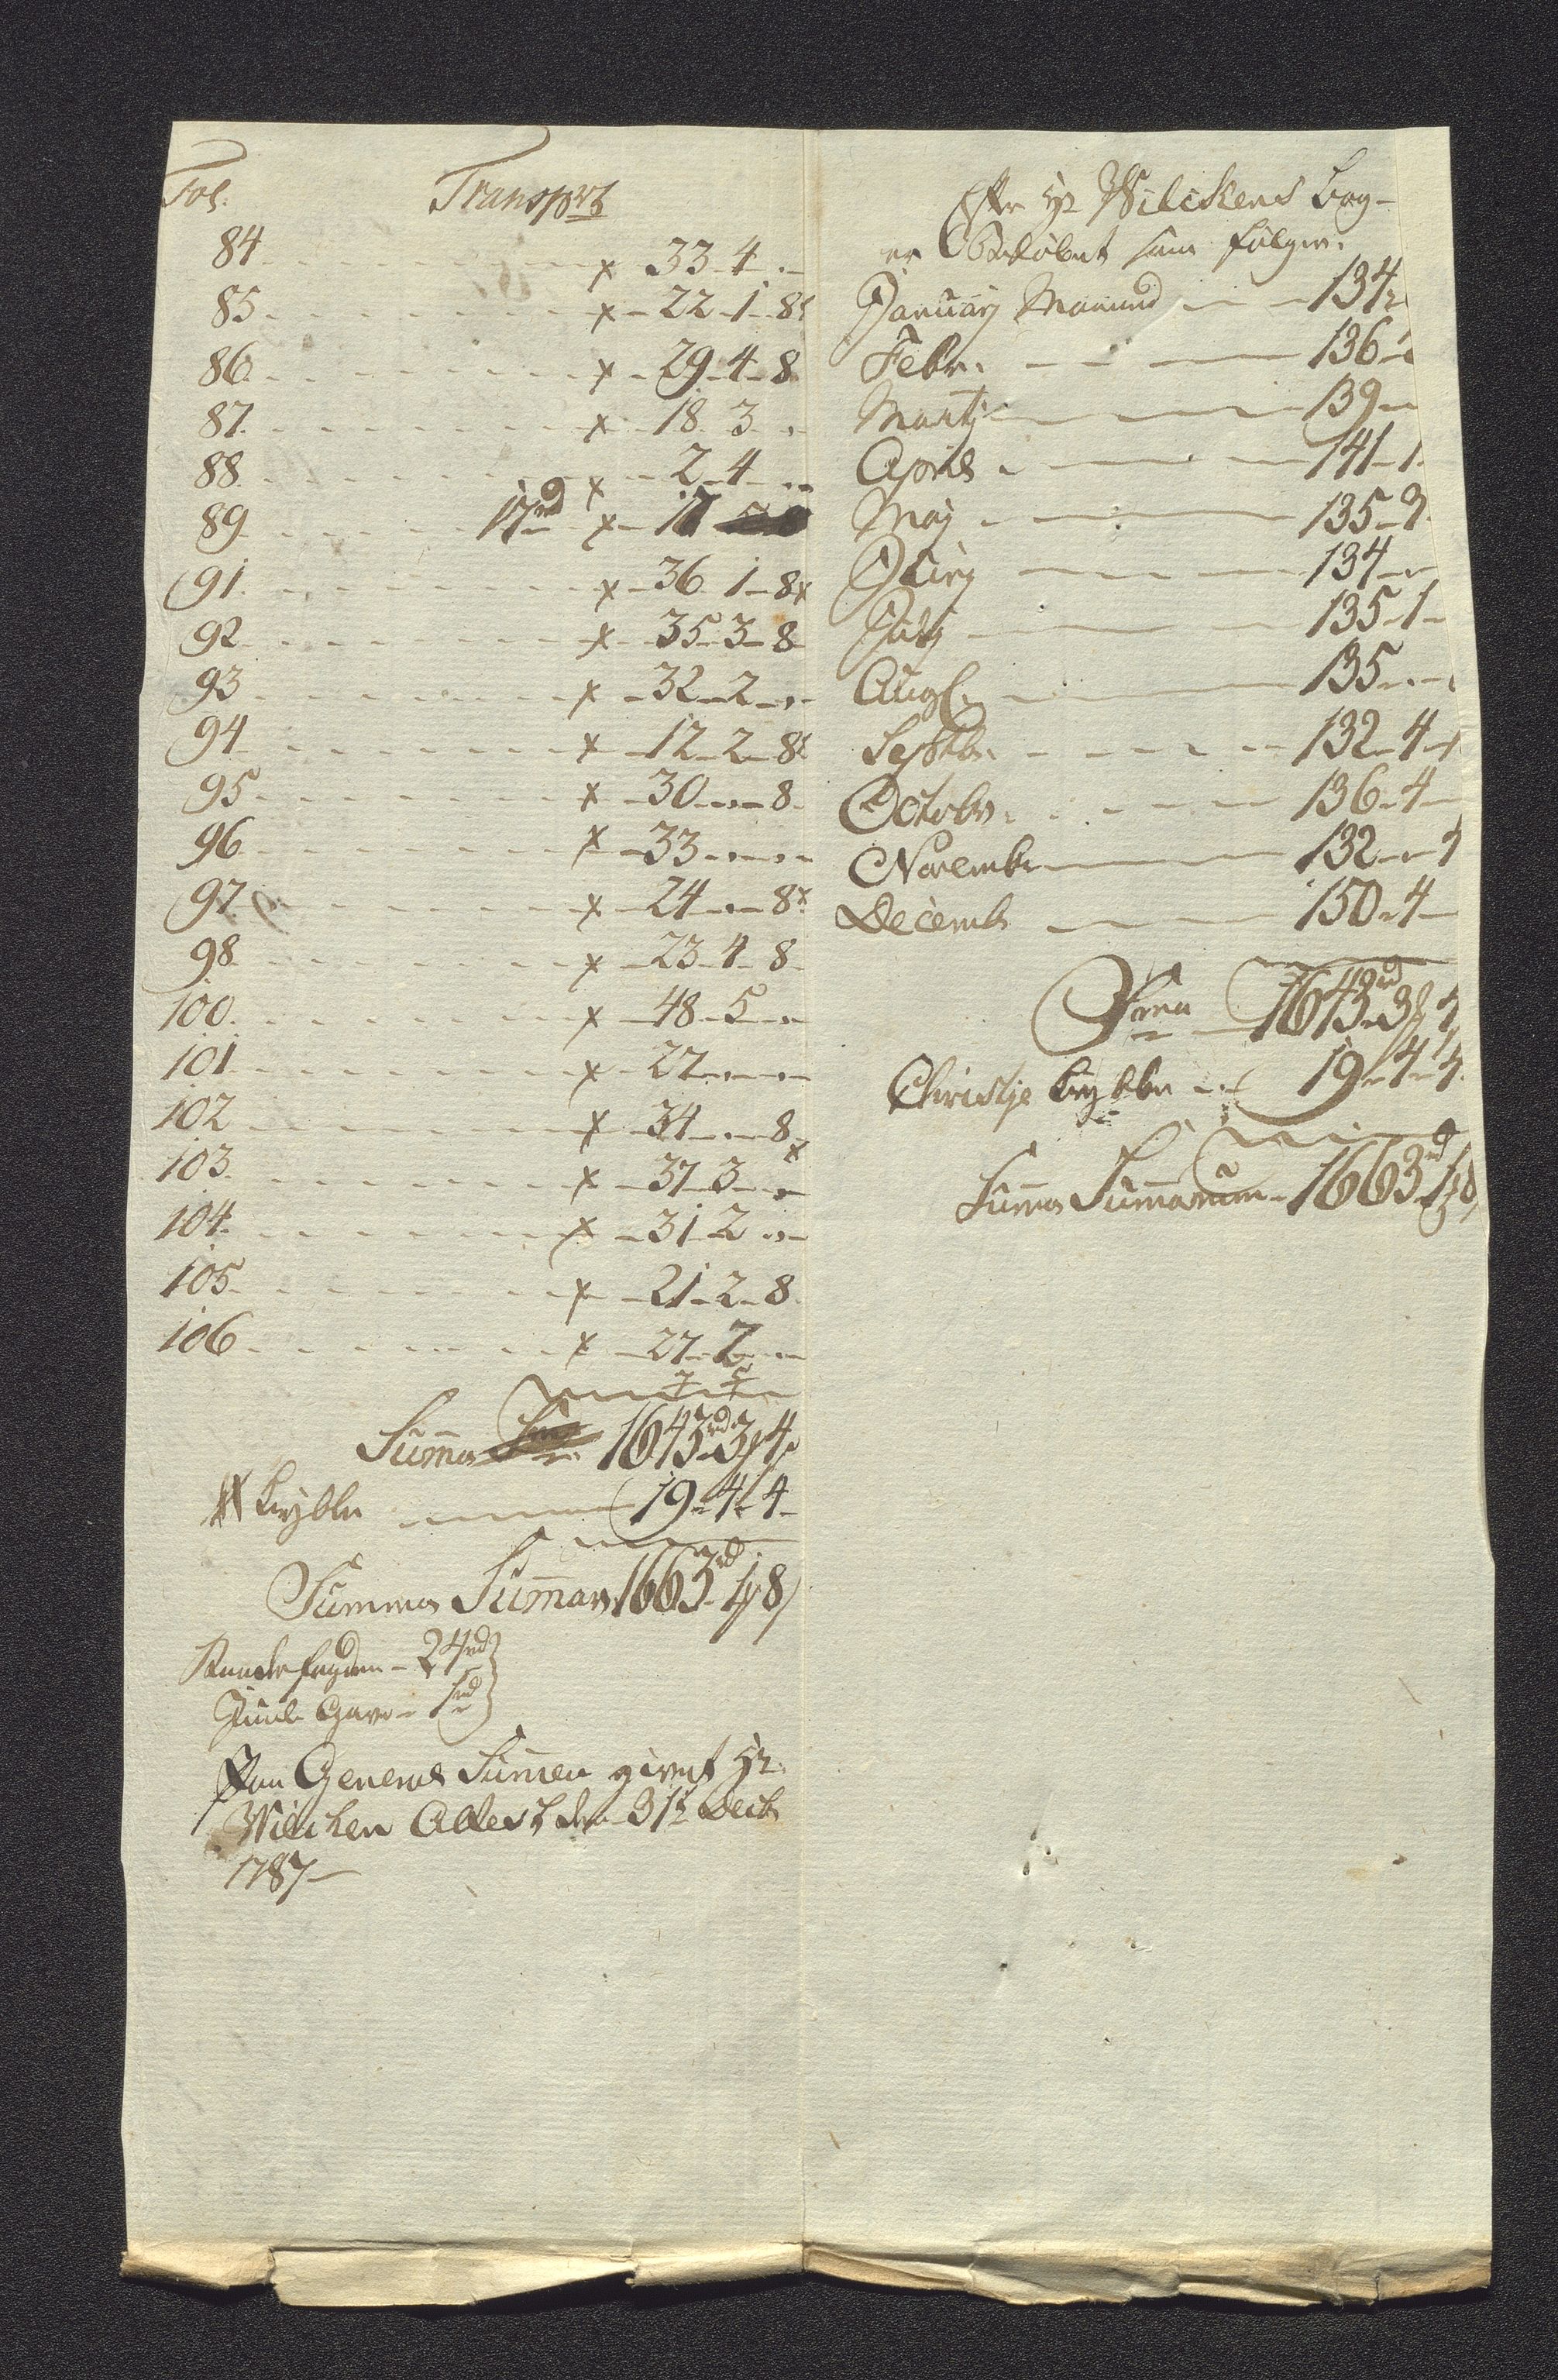 Fol. Transport
84 x 33 4 "
85 x 22 1 8
86 x 29 4 8
87 x 18 3 "
88 x 2 4 "
89 17rd x 17
91 x 36 1 8
92 x 35 3 8
93 x 32 2 "
94 x 12 2 8
95 x 30 " 8
96 x 33 " "
97 x 24 " 8
98 x 23 4 8
100 x 48 5 "
101 x 27 " "
102 x 34 " 8
103 x 37 3 "
104 x 31 2 "
105 x 21 2 8
106 x 27 2 "
Summa 1643rd 3 4
Bøxler 19 4 4
Summa Summar 1663rd 1 8
24rd
Juule Gave 1rd
General Summen givet Hr
Wilcken Attest den 31t Decb
1787
Efter Hr Wilckens Bog
er Beløbet som følger.
January Maaned 134
Febr. 136
Martj 139
April 141 1
Maj 135
Juny 134
July 135 1
Aug. 135
Septbr 132 4
Octobr 136 4
Novembr 132
Decemb 150 4
Sma 1643rd 3
Christje 19 4 4
Summa Summarum 1663rd 1 8